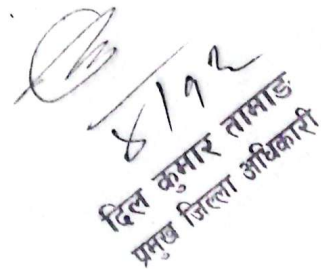 ४/१२
दिल कुमार तामाङ
प्रमुख जिल्ला अधिकारी